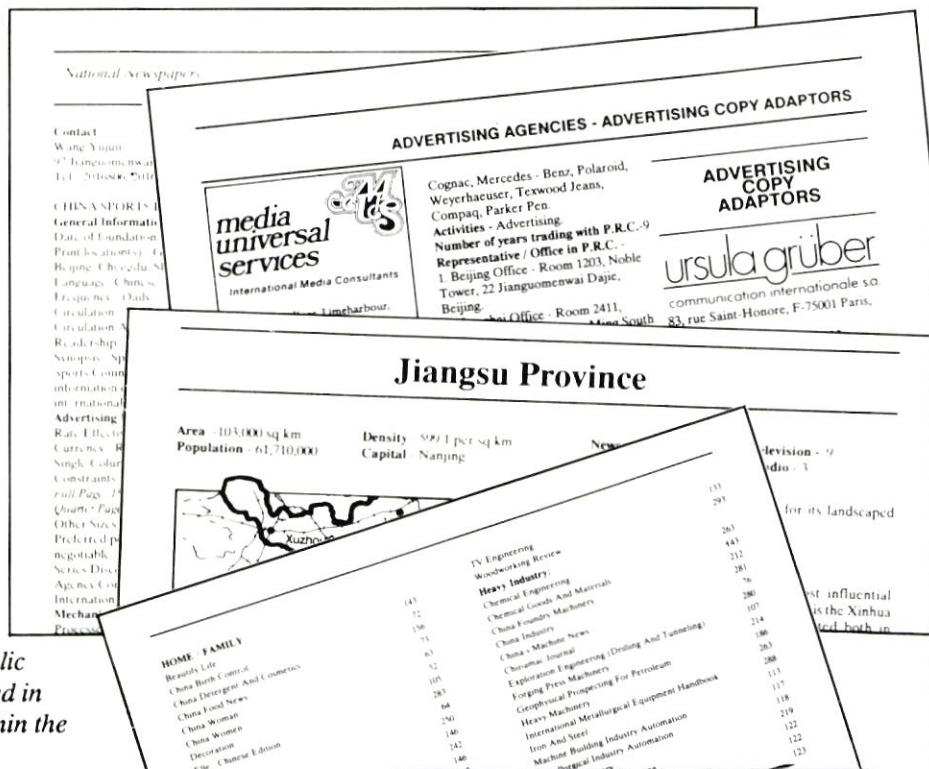 National Newspapers
Contact
Wang Yujun
97 Jianguomenwai
CHINA SPORTS
General Informati
Date of Foundation
Print location(s)
Beijing, Chengdu, Sh
Language Chinese
Frequency Daily
Circulation
Circulation A
Readership
Synopsis Sp
sports Comm
information
international
Advertising
Rate Effecti
Currency R
Single Colu
Constraints
Full Page
Quarter Page
Other Sizes
Preferred p
negotiable
Series Disco
Agency Co
Internation
Mechani
Processe
ADVERTISING AGENCIES - ADVERTISING COPY ADAPTORS
media
universal
services
International Media Consultants
Limeharbour,
Cognac, Mercedes - Benz, Polaroid,
Weyerhaeuser, Texwood Jeans,
Compaq, Parker Pen.
Activities - Advertising.
Number of years trading with P.R.C.-9
Representative / Office in P.R.C. -
1. Beijing Office - Room 1203, Noble
Tower, 22 Jianguomenwai Dajie,
Beijing.
Office - Room 2411,
Ming South
ADVERTISING
COPY
ADAPTORS
ursula grüber
communication internationale s.a.
83, rue Saint-Honore, F-75001 Paris,
Jiangsu Province
Area - 103,000 sq km
Population - 61,710,000
Density 599.1 per sq km
Capital Nanjing
News
levision - 9
dio - 3
for its landscaped
st influential
is the Xinhua
ted both in
Xuzhou
HOME / FAMILY
Beautify Life 143
China Birth Control 72
China Detergent And Cosmetics 136
China Food News 71
China Woman 63
China Women 52
Decoration 105
Elle - Chinese Edition
283
64
250
146
242
146
TV Engineering 133
Woodworking Review 293
Heavy Industry:
Chemical Engineering 263
Chemical Goods And Materials 143
China Foundry Machinery 212
China Industry 281
China's Machine News 76
Chinamac Journal 280
Exploration Engineering (Drilling And Tunneling) 107
Forging Press Machinery 214
Geophysical Prospecting For Petroleum 186
Heavy Machinery 263
International Metallurgical Equipment Handbook 288
Iron And Steel 113
Machine Building Industry Automation 117
urgical Industry Automation 118
219
122
122
123
lic
d in
hin the